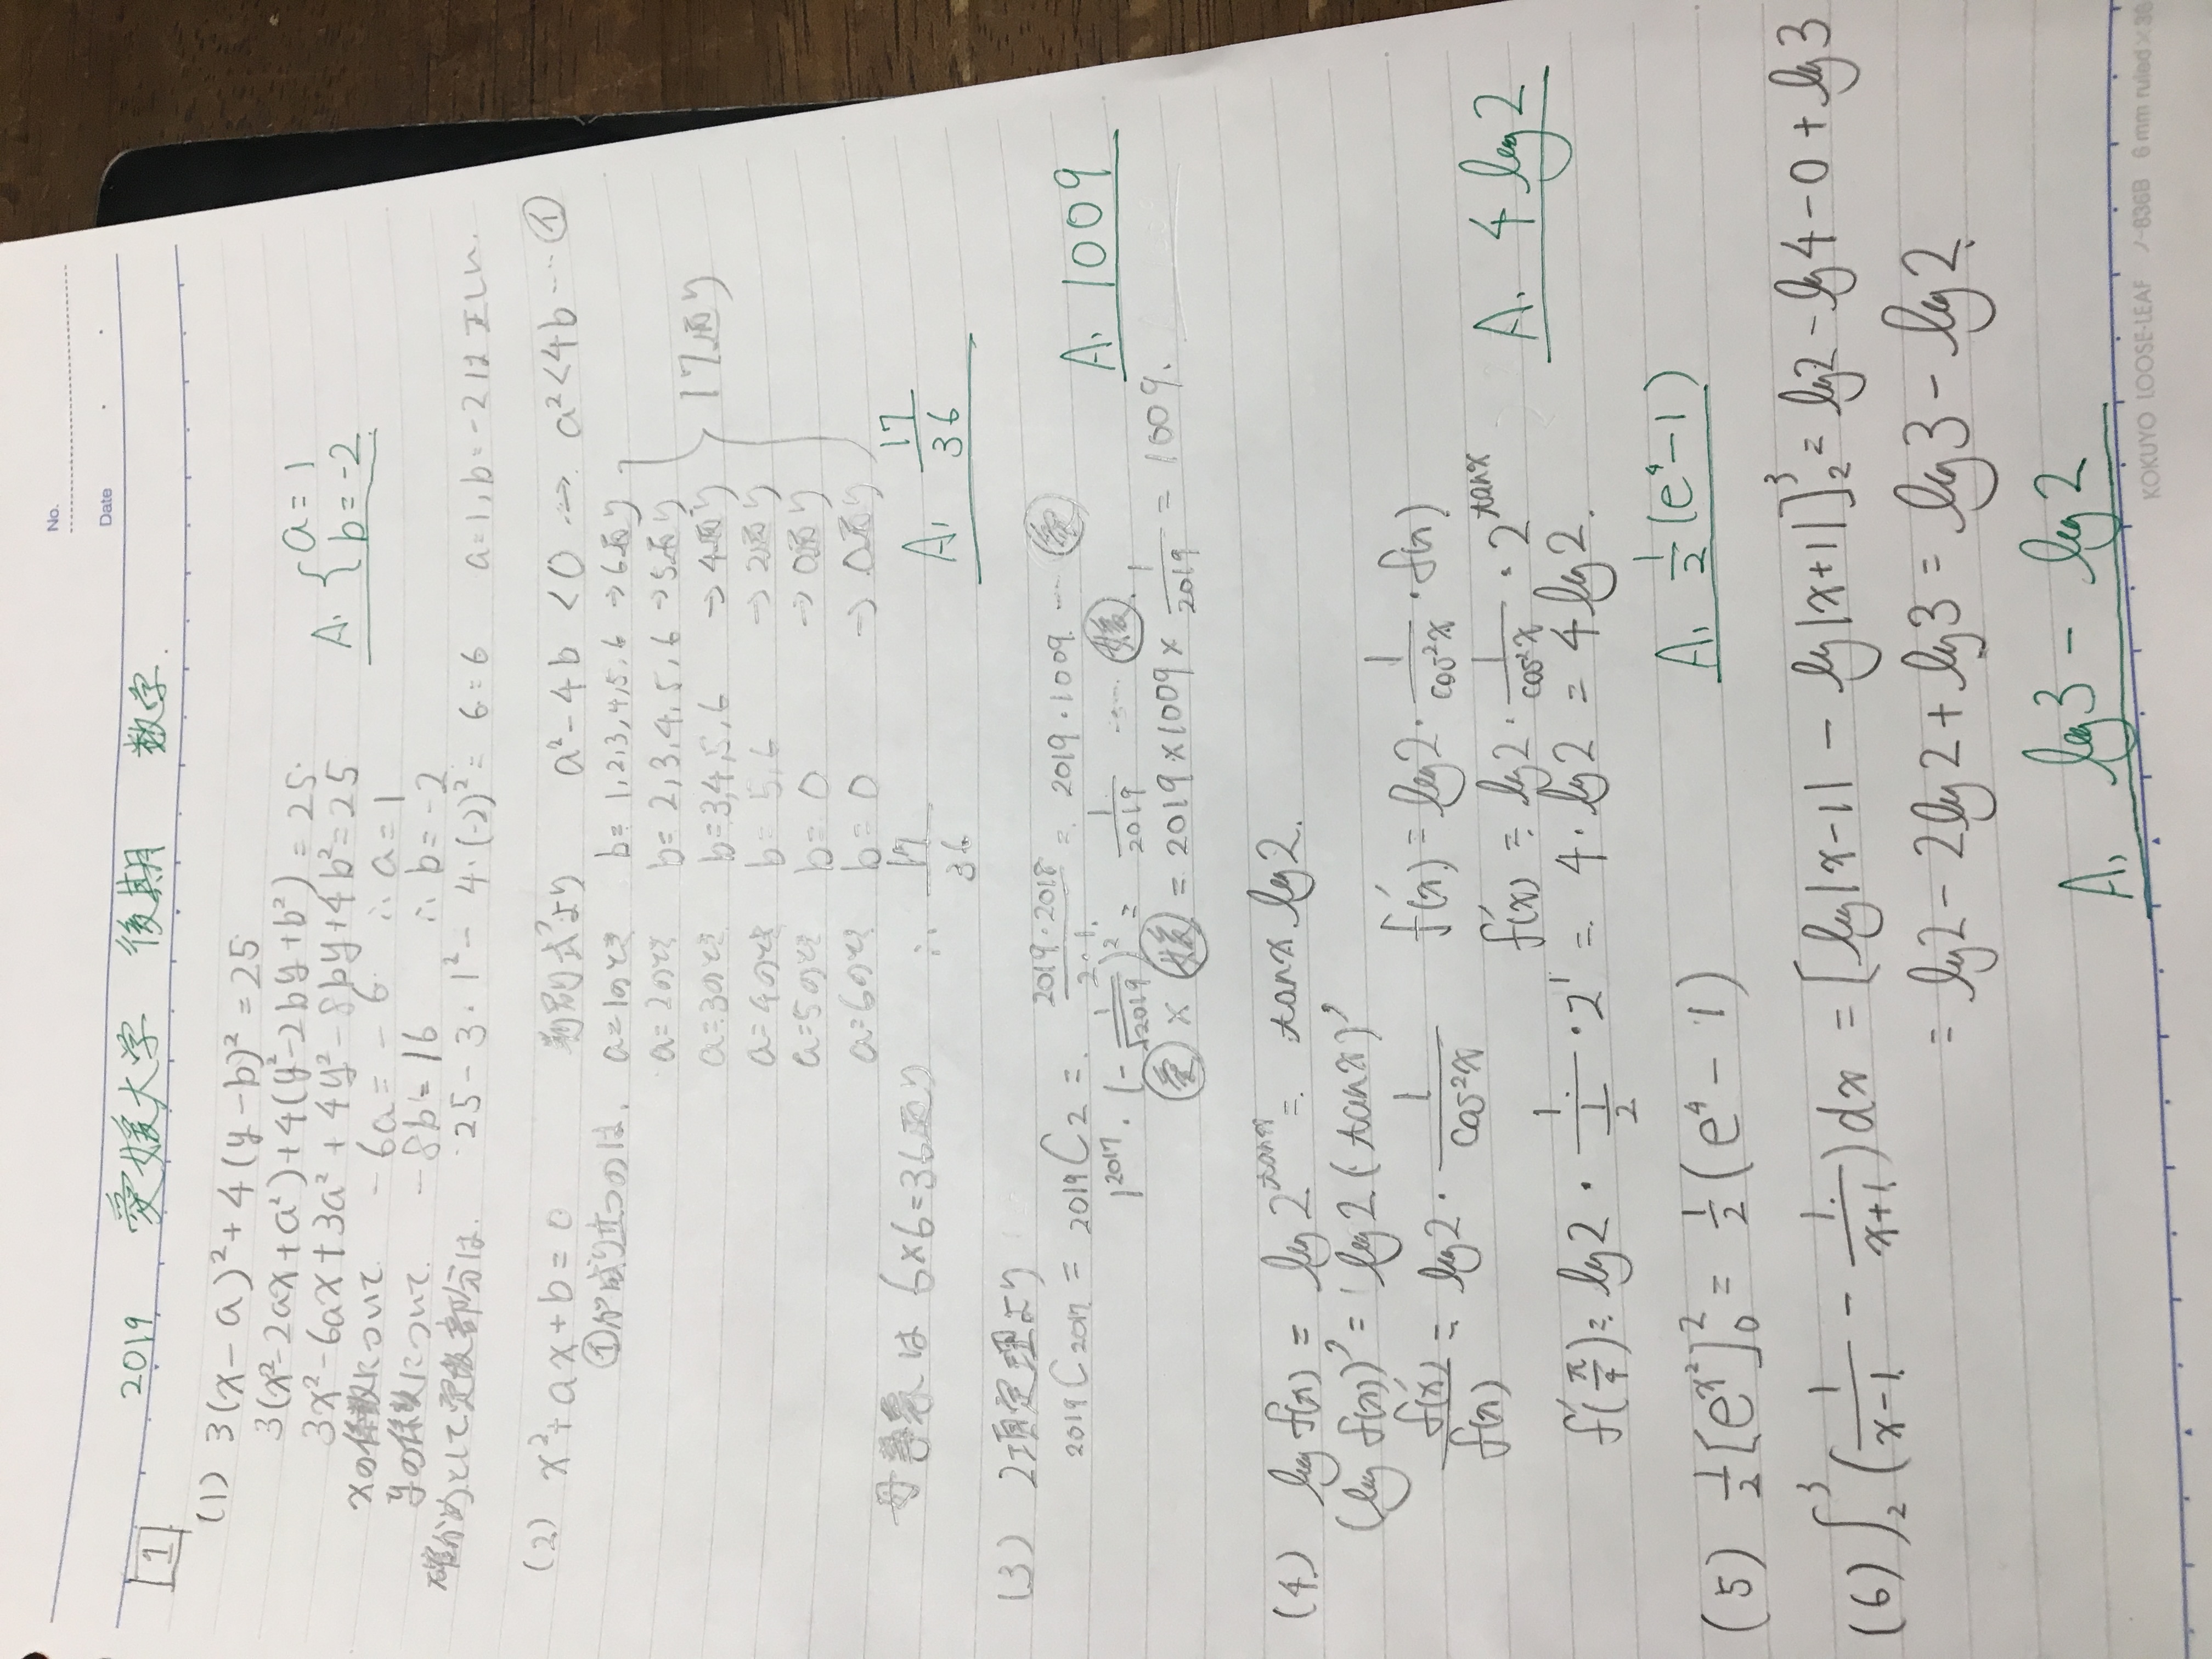 No.
Date
2019 愛媛大学 後期 数学
1
(1) 3(x-a)²+4(y-b)²=25
3(x²-2ax+a²)+4(y²-2by+b²)=25
3x²-6ax+3a²+4y²-8by+4b²=25
xの係数について -6a=-6 ∴a=1
yの係数について -8b=16 ∴b=-2
A. {a=1 b=-2
確認として定数部分は 25-3・1²-4・(-2)²=6=6 a=1,b=-2は正しい.
(2) x²+ax+b=0 判別式より a²-4b<0 ⇔ a²<4b…①
①が成り立つのは、a=1のとき b=1,2,3,4,5,6 →6通り
a=2のとき b=2,3,4,5,6 →5通り
a=3のとき b=3,4,5,6 →4通り
a=4のとき b=5,6 →2通り
a=5のとき b=0 →0通り
a=6のとき b=0 →0通り
17通り
母事象は 6×6=36通り ∴ 17/36
A. 17/36
(3) 2項定理より
2019C2017=2019C2=2019・2018/2・1=2019・1009…愛
1^2017・(-1/√2019)²=1/2019……媛
愛×媛=2019×1009×1/2019=1009.
A. 1009
(4) log f(x)=log 2^tanx=tanx log2.
(log f(x))'=log2(tanx)'
f'(x)/f(x)=log2・1/cos²x f'(x)=log2・1/cos²x・f(x)
f'(x)=log2・1/cos²x・2^tanx
f'(π/4)=log2・1/(1/2)・2¹=4・log2=4log2.
A. 4log2
(5) 1/2[e^x²]₀²=1/2(e⁴-1)
A. 1/2(e⁴-1)
(6) ∫₂³(1/(x-1)-1/(x+1))dx=[log|x-1|-log|x+1|]₂³=log2-log4-0+log3
=log2-2log2+log3=log3-log2.
A. log3-log2
KOKUYO LOOSE-LEAF ノ-836B 6mm ruled×36